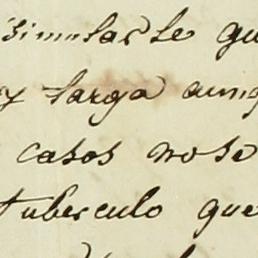 simular se qu
y larga aunq
casos no se
tuberculo que